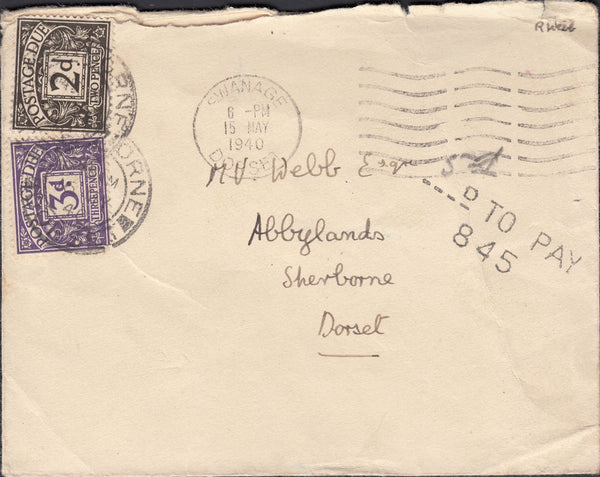 R Webb
POSTAGE DUE
2d
TWO PENCE
POSTAGE DUE
3d
THREE PENCE
SHERBORNE
SWANAGE
6 - PM
15 MAY
1940
DORSET
5d
D TO PAY
845
M V Webb Esqre
Abbylands
Sherborne
Dorset